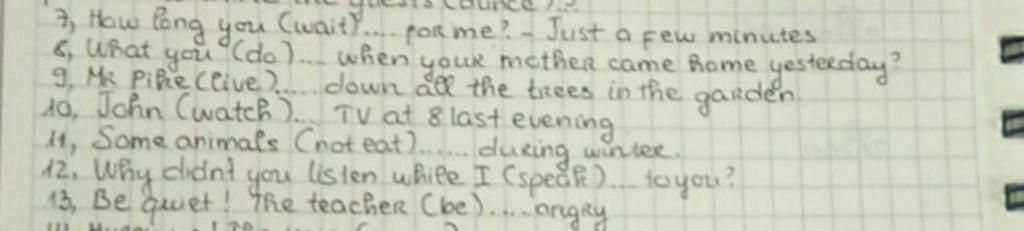 the guests (dance)...?
7, How long you (wait).... for me? - Just a few minutes
8, What you (do).... when your mother came home yesterday?
9, Mr Pike (live)..... down all the trees in the garden.
10, John (watch).... TV at 8 last evening
11, Some animals (not eat)....... during winter.
12, Why didn't you listen while I (speak).... to you?
13, Be quiet! The teacher (be)..... angry